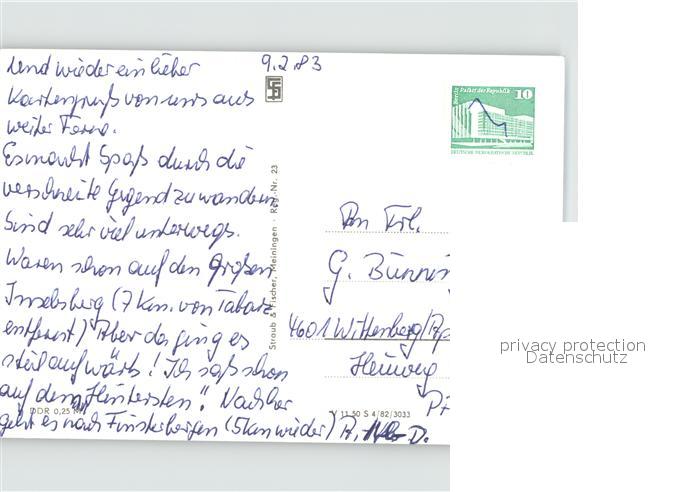 Und wieder ein lieber
Kartengruß von uns aus
weiter Ferne.
Es macht Spaß durch die
verschneite Gegend zu wandern
Sind sehr viel unterwegs.
Waren schon auf den Großen
Inselsberg (7 km. von Tabarz
entfernt) Aber da ging es
steil aufwärts! Ich saß schon
auf dem "Hintersten". Nachher
geht es nach Finsterbergen (5 km wieder)
9.2.83
Berlin Palast der Republik 10
DEUTSCHE DEMOKRATISCHE REPUBLIK
Straub & Fischer, Meiningen · Reg.-Nr. 23
An Frl.
G. Bünnin
4601 Wittenberg/
Heuweg
DDR 0,25 M
V 11 50 S 4/82/3033
privacy protection
Datenschutz